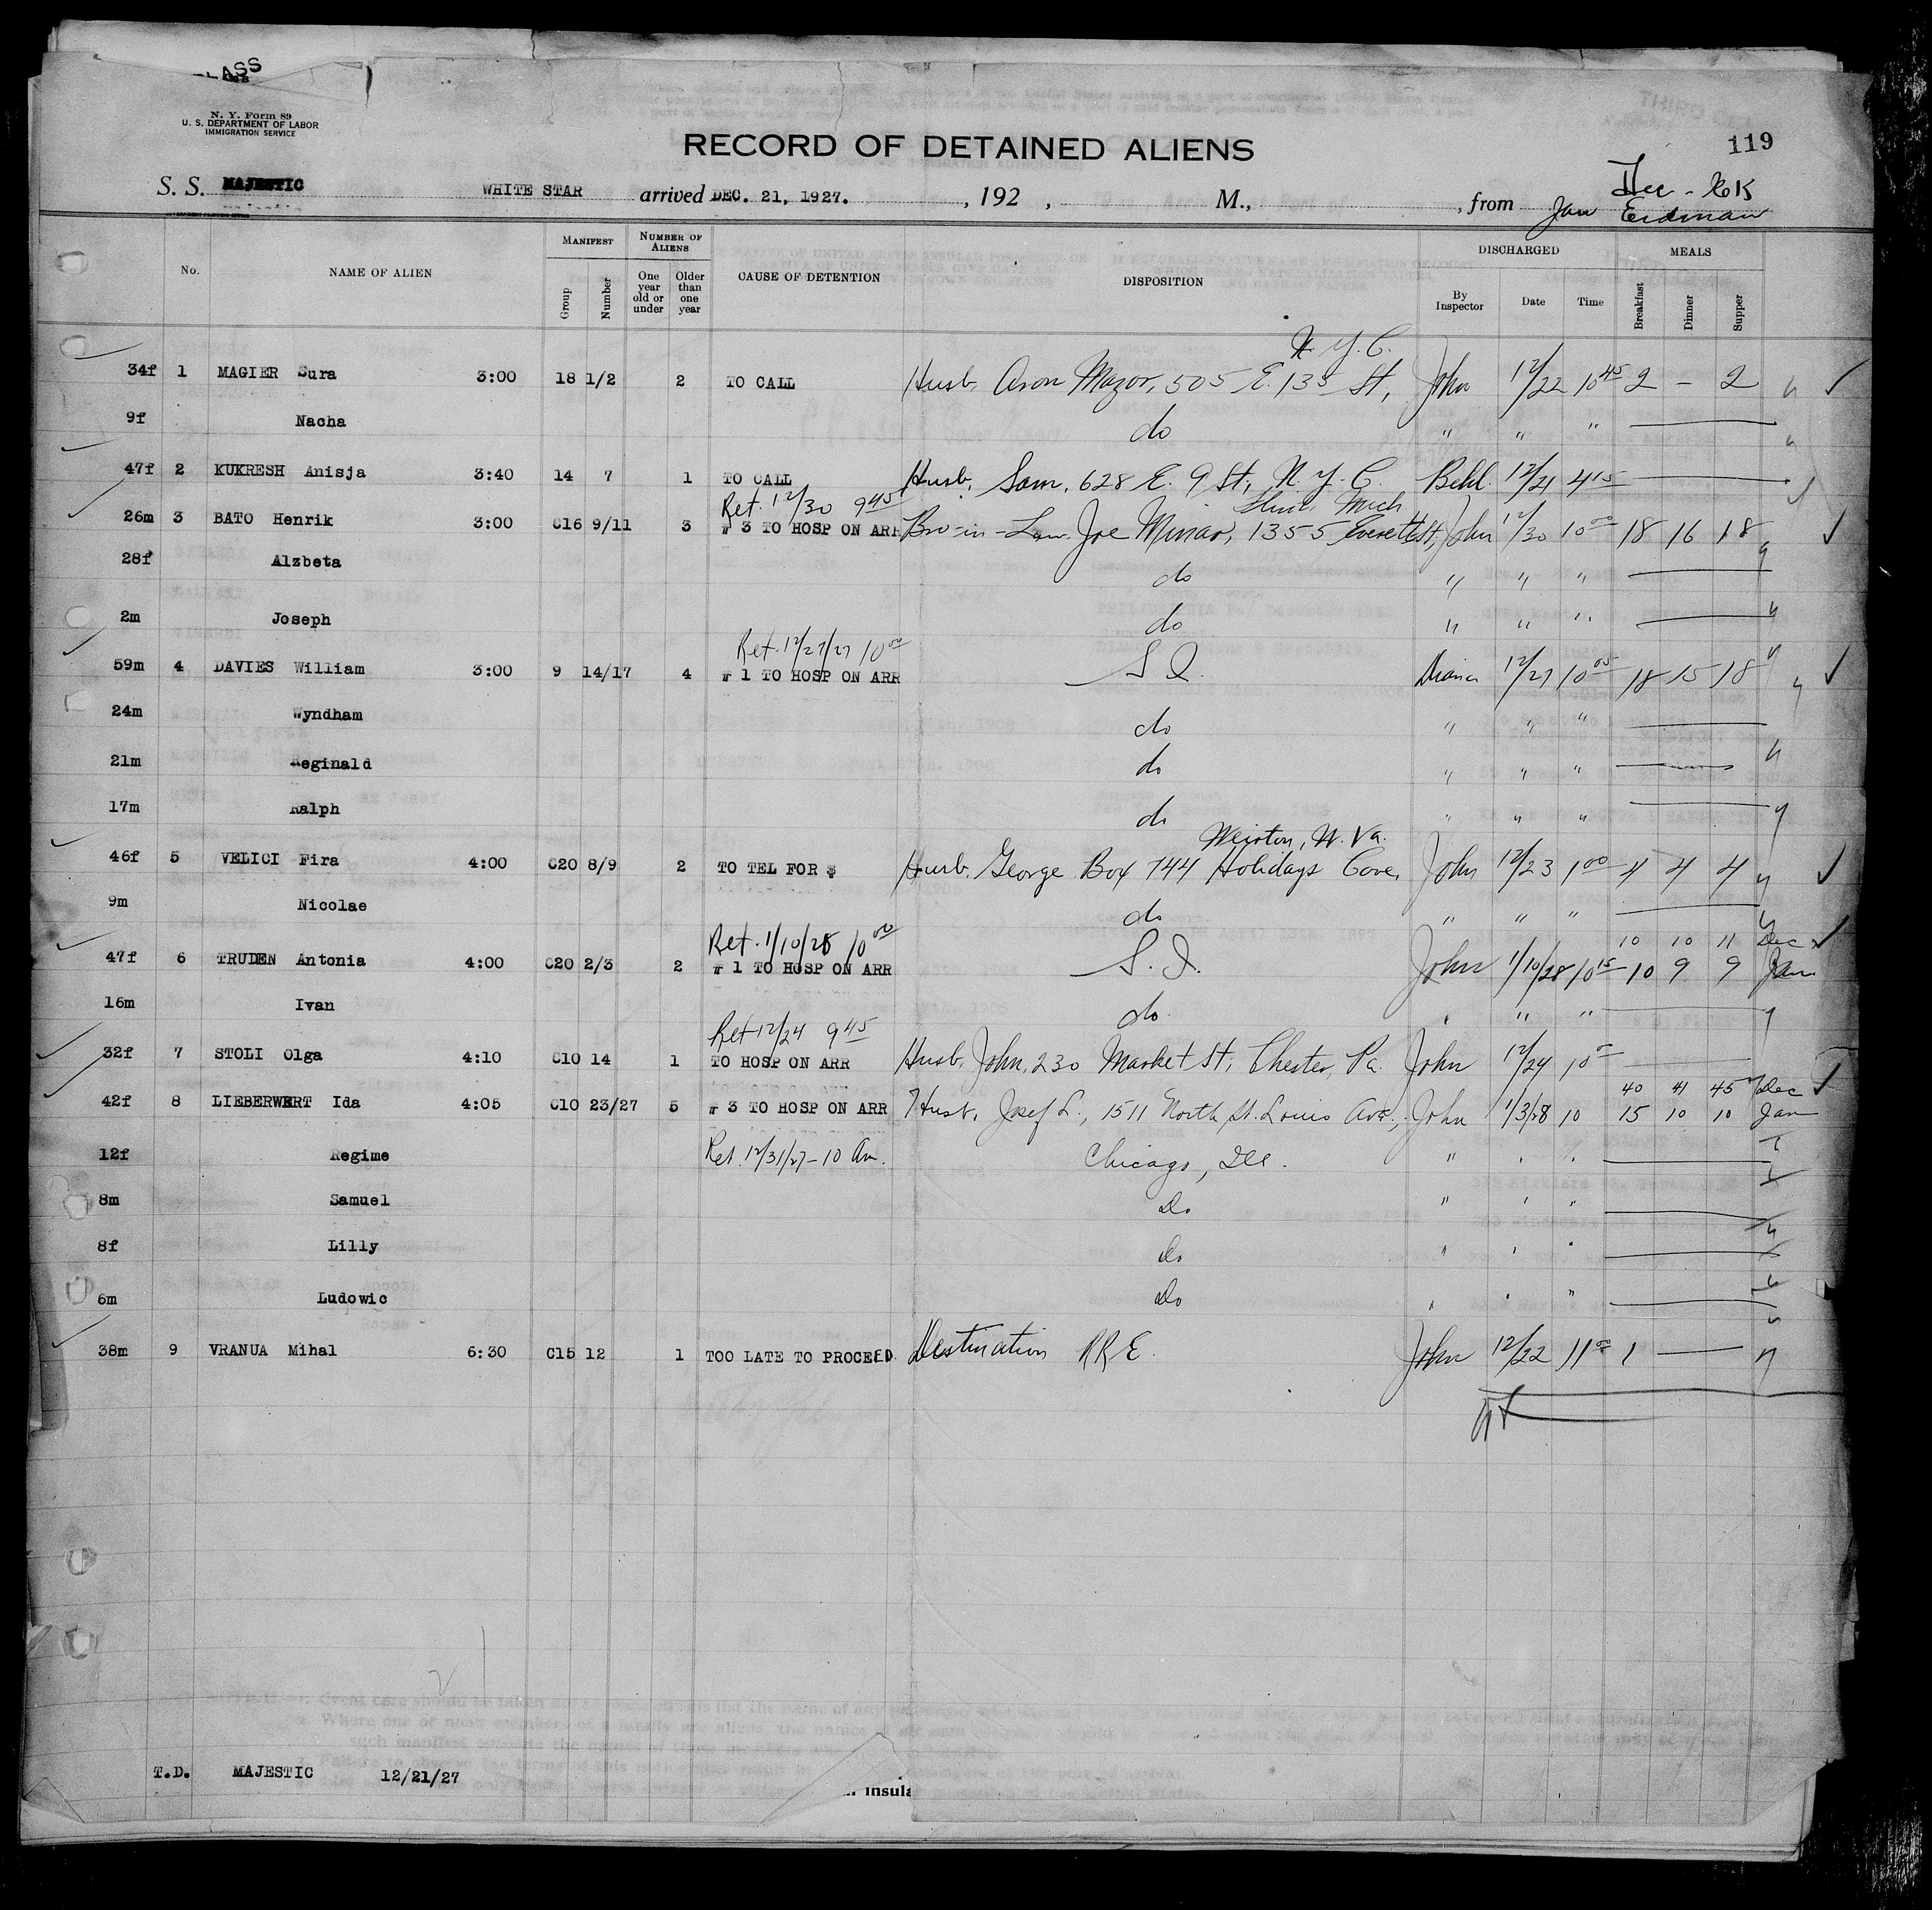 LASS
N. Y. Form 89
U. S. DEPARTMENT OF LABOR
IMMIGRATION SERVICE
RECORD OF DETAINED ALIENS
119
S. S. MAJESTIC WHITE STAR arrived DEC. 21, 1927. , 192 , M., , from
Dec -
Jan Erdman
No. NAME OF ALIEN MANIFEST Group Number NUMBER OF ALIENS One year old or under Older than one year CAUSE OF DETENTION DISPOSITION DISCHARGED By Inspector Date Time MEALS Breakfast Dinner Supper
N.Y.C.
34f 1 MAGIER Sura 3:00 18 1/2 2 TO CALL Husb. Aron Mazor, 505 E. 135 St, John 12/22 10 45 2 — 2
9f Nacha do " " "
47f 2 KUKRESH Anisja 3:40 14 7 1 TO CALL Husb. Sam, 628 E. 9 St, N.Y.C. 12/21 4 15
Ret. 12/30 9 45 Flint Mich
26m 3 BATO Henrik 3:00 C16 9/11 3 # 3 TO HOSP ON ARR Bro-in-Law Joe 1355 Everett St, John 12/30 10 00 18 16 18
28f Alzbeta do " " "
2m Joseph do " " "
Ret. 12/27/27 10 00
59m 4 DAVIES William 3:00 9 14/17 4 # 1 TO HOSP ON ARR S I. 12/27 10 05 18 15 18
24m Wyndham do " " "
21m Reginald do " " "
17m Ralph do " " "
Weirton, W. Va.
46f 5 VELICI Fira 4:00 C20 8/9 2 TO TEL FOR $ Husb. George Box 744 Holidays Cove, John 12/23 1 00 4 4 4
9m Nicolae do " " "
Ret. 1/10/28 10 00 10 10 11 Dec
47f 6 TRUDEN Antonia 4:00 C20 2/3 2 # 1 TO HOSP ON ARR S. I. John 1/10/28 10 15 10 9 9 Jan
16m Ivan do " " "
Ret 12/24 9 45
32f 7 STOLI Olga 4:10 C10 14 1 TO HOSP ON ARR Husb. John, 230 Market St, Chester, Pa. John 12/24 10 00
40 41 45 Dec
42f 8 LIEBERWERT Ida 4:05 C10 23/27 5 # 3 TO HOSP ON ARR Husb. Josef L., 1511 North St. Louis Ave., John 1/3/28 10 15 10 10 Jan
12f Regime Ret. 12/31/27 - 10 Am. Chicago, Ill. " " "
8m Samuel Do " " "
8f Lilly Do " " "
6m Ludowic Do " " "
38m 9 VRANUA Mihal 6:30 C15 12 1 TOO LATE TO PROCEED Destination RRE. John 12/22 11 00 1
T.D. MAJESTIC 12/21/27
Insula